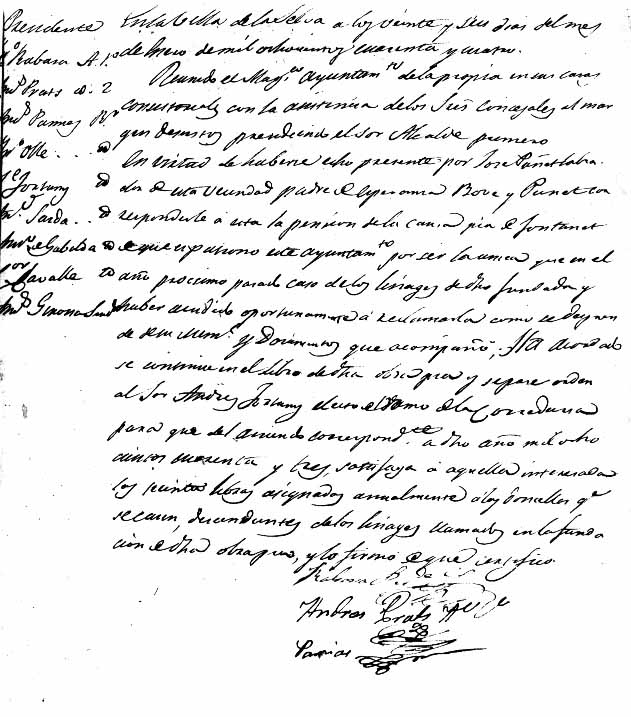 Presidente
Rabasa A. 1º
Prats id. 2
Pamies
Olle . . . id
Fortuny id
Sarda . . id
Gabalda id
Cavalle id
Girona
En la Villa de la Selva a los veinte y seis dias del mes
de Enero de mil ochocientos cuarenta y cuatro.
Reunido el Magco Ayuntamto de la propia en sus casas
consistoriales con la asistencia de los Sres Concejales al mar
gen descritos presidiendo el Sor Alcalde primero
En virtud de haberse echo presente por Jose
dor de esta vecindad padre de Esperansa Bove y Punet
responderle á esta la pension de la causa pia de Fontanet
de que es patrono este Ayuntamto por ser la unica que en el
año procsimo pasado caso de los linages de dho fundador y
haber acudido oportunamte á reclamarla como es de ver
de su Meml y Documentos que acompañó; Ha acordado
se continue en el libro de dha obra pia y se pase orden
al Sor Andres Fortuny de la Correduria
para que del arriendo correspondte a dho año mil ocho
cientos cuarenta y tres, satisfaga á aquella interesada
las treinta libras asignadas anualmente á las Doncellas qe
se casen, descendientes de los linages llamados en la funda
cion de dha obra pia, y lo firmó de que certifico.
Rabasa
Andres Prats
Pamies